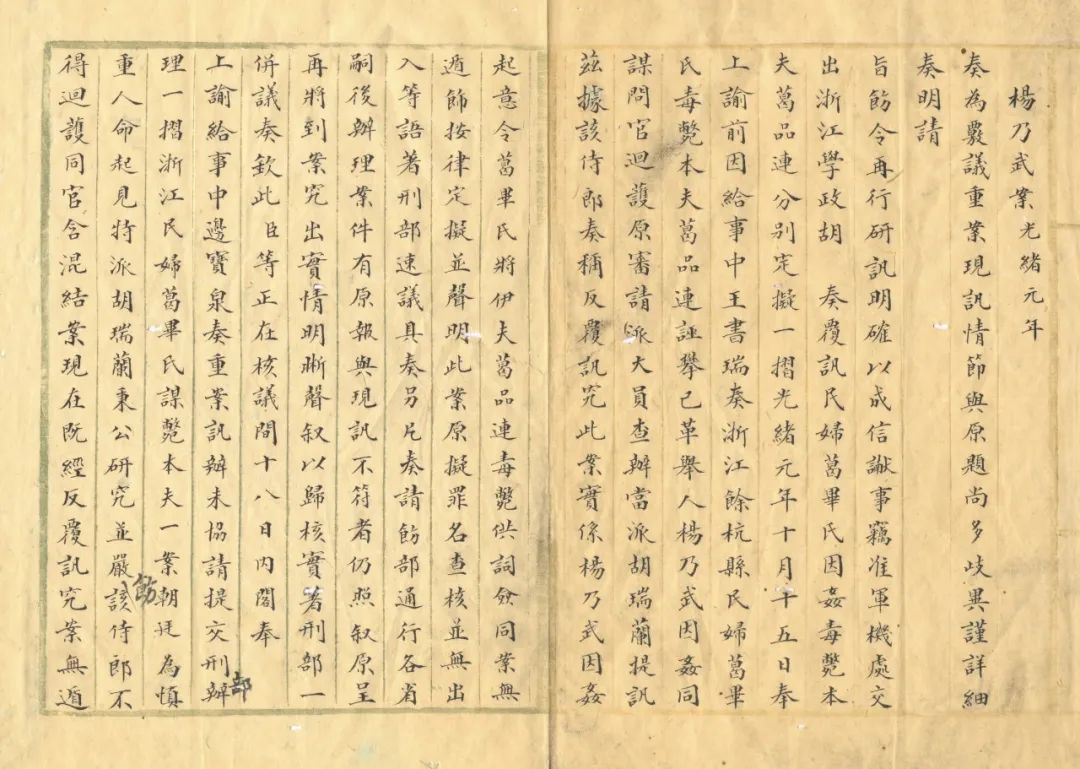 楊乃武案光緒元年
奏為覈議重案現訊情節與原題尚多歧異謹詳細
奏明請
旨飭令再行研訊明確以成信讞事竊准軍機處交
出浙江學政胡 奏覆訊民婦葛畢氏因姦毒斃本
夫葛品連分別定擬一摺光緒元年十月十五日奉
上諭前因給事中王書瑞奏浙江餘杭縣民婦葛畢
氏毒斃本夫葛品連誣舉已革舉人楊乃武因姦同
謀問官迴護原審請派大員查辦當派胡瑞蘭提訊
茲據該侍郎奏稱反覆訊究此案實係楊乃武因姦
起意令葛畢氏將伊夫葛品連毒斃供詞僉同案無
遁飾按律定擬並聲明此案原擬罪名查核並無出
入等語著刑部速議具奏另片奏請飭部通行各省
嗣後辦理案件有原報與現訊不符者仍照叙原呈
再將到案究出實情明晰聲叙以歸核實著刑部一
併議奏欽此臣等正在核議間十八日內閣奉
上諭給事中邊寶泉奏重案訊辦未協請提交刑部辦
理一摺浙江民婦葛畢氏謀斃本夫一案朝廷為慎
重人命起見特派胡瑞蘭秉公研究並嚴飭該侍郎不
得迴護同官含混結案現在既經反覆訊究案無遁